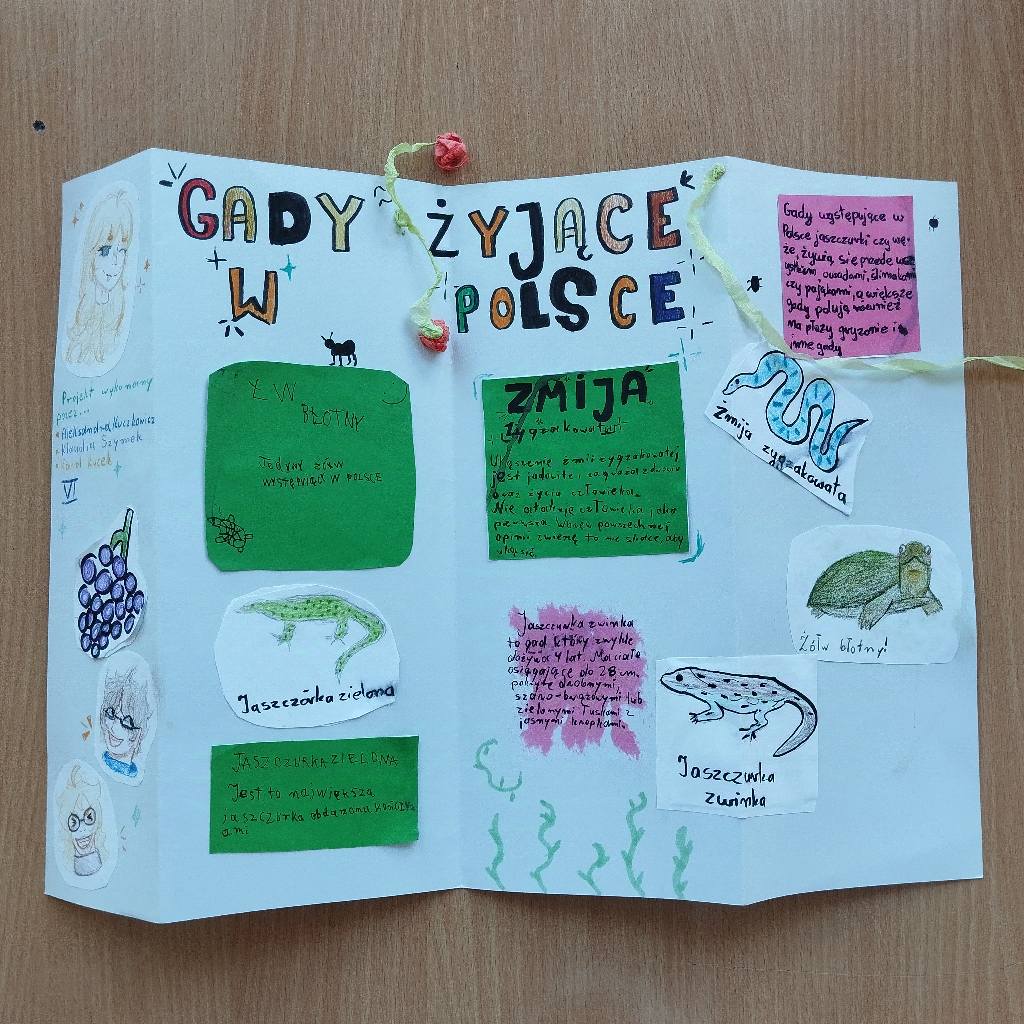 GADY ŻYJĄCE
W POLSCE
Projekt wykonany
przez...
• Aleksandra Kuczkowicz
• Klaudia Szymek
• Karol Kucek
VI
ŻW
BŁOTNY
Jedyny żółw
WYSTĘPUJĄCY W POLSCE
Jaszczórka zielona
JASZCZURKA ZIELONA
Jest to największa
JASZCZÓRKA obdarzona
ami
ŻMIJA
zygzakowata
Ukąszenie żmii zygzakowatej
jest jadowite, zagraża zdrowiu
oraz życia człowieka.
Nie atakuje człowieka jako
pierwsza. Wbrew powszechnej
opinii zwierzę to nie skacze, aby
ukąsić.
Jaszczurka zwinka
to gad który zwykle
dożywa 4 lat. Ma ciało
osiągające do 28 cm.
pokryte drobnymi,
szaro-brązowymi lub
zielonymi łuskami z
jasnymi kropkami.
Jaszczurka
zwinka
Gady występujące w
Polsce jaszczurki czy wę-
że, żywią się przede wszystkim
owadami, ślimakami
czy pająkami, a większe
gady polują również
na płazy gryzonie i
inne gady
Żmija zygzakowata
Żółw błotny!